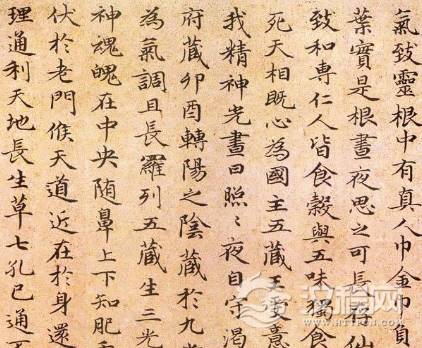 氣致靈根中有真人巾金巾負
葉實是根晝夜思之可長存仙
致和專仁人皆食穀與五味獨食
死天相既心為國主五藏王受意
我精神光晝日照〻夜自守渴
府藏卯酉轉陽之陰藏於九
為氣調且長羅列五藏生三光
神魂魄在中央随鼻上下知肥
伏於老門候天道近在於身還
理通利天地長生草七孔已通不
汉程网
HTTPCN.COM